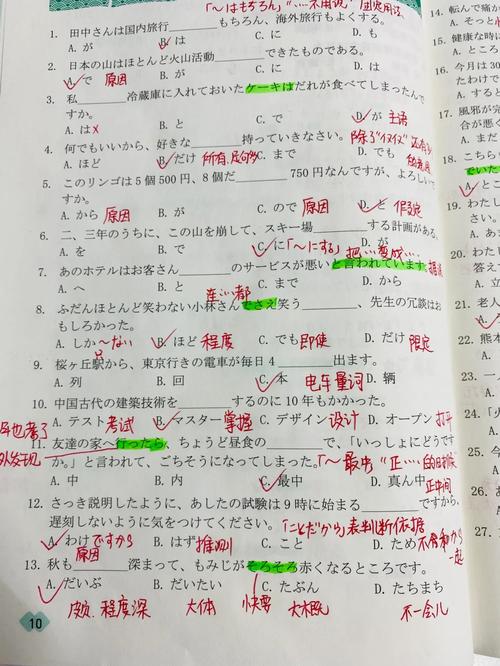 「～はもちろん」
1. 田中さんは国内旅行______もちろん、海外旅行もよくする。
A. が B. は C. に D. も
2. 日本の山はほとんど火山活動______できたものである。
A. で 原因 B. が C. に D. は
3. 私______冷蔵庫に入れておいたケーキはだれが食べてしまったんで
すか。
A. は× B. と C. で D. が 主语
4. 何でもいいから、好きな______持っていきなさい。
A. ほど B. だけ C. まで D. でも
5. このリンゴは5個500円、8個だ______750円なんですが、よろしいで
すか。
A. から 原因 B. が C. ので 原因 D. と
6. 二、三年のうちに、この山を崩して、スキー場______する計画がある。
A. を B. で C. に「～にする」 D. が
把…变成…
7. あのホテルはお客さん______のサービスが悪いと言われています。
A. へ B. と C. まで D. から
连…都
8. ふだんほとんど笑わない小林さんでさえ笑う______、先生の冗談はお
もしろかった。
A. しか～ない B. ほど 程度 C. でも即使 D. だけ 限定
9. 桜ヶ丘駅から、東京行きの電車が毎日4______出ます。
A. 列 B. 回 C. 本 电车量词 D. 辆
10. 中国古代の建築技術を______するのに10年もかかった。
A. テスト考试 B. マスター 掌握 C. デザイン设计 D. オープン 打开
11. 友達の家へ行ったら、ちょうど昼食の______で、「いっしょにどうです
か。」と言われて、ごちそうになってしまった。「～最中」"正…的时候"
A. 中 B. 内 C. 最中 D. 真ん中 正中间
12. さっき説明したように、あしたの試験は9時に始まる______ですから、
遅刻しないように気をつけてください。「ことだから」表判断依据
A. わけですから B. はず推测 C. こと D. ため
原因
13. 秋も______深まって、もみじがそろそろ赤くなるところです。
A. だいぶ B. だいたい C. たぶん D. たちまち
颇.程度深 大体 快要 大概 不一会儿
10
14. 転んで痛か
A. そっと
15. 健康な時に
A. ところ
16. 今月は30
たわけで
A. する
17. 風邪が完
合が悪く
A. まで
18. こちら
でいた
A. と
19. わたし
A.
20. わたし
A. 立
21. 老人
A.
22. 熊本
A.
23.
24.
A.
25. 今
A.
26.
A.
27.